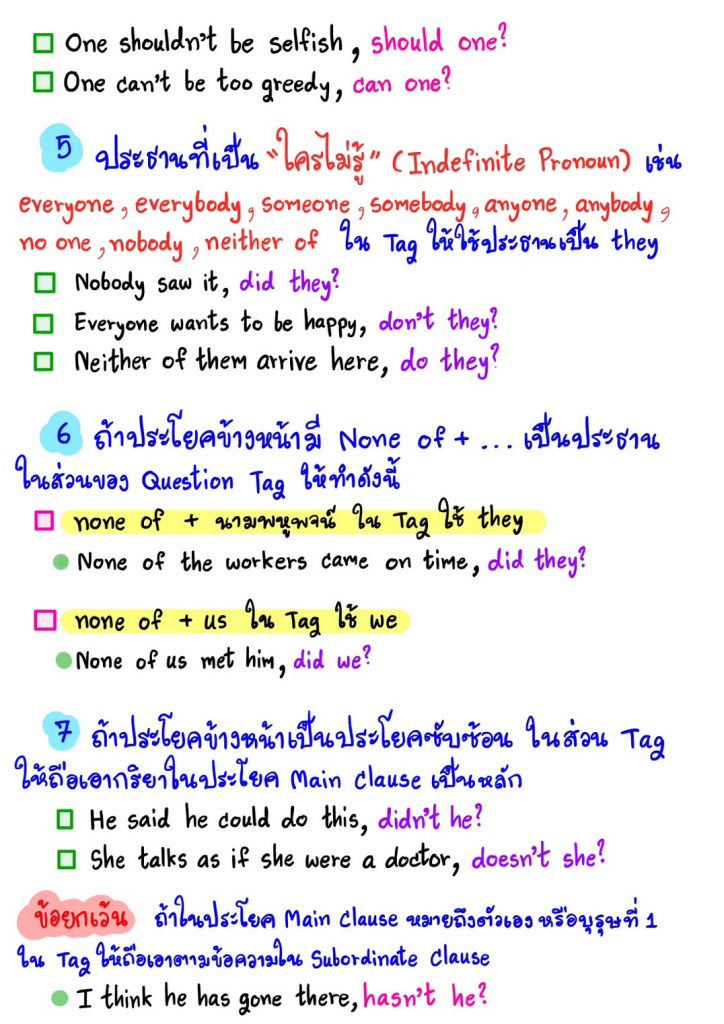 One shouldn't be selfish, should one?
One can't be too greedy, can one?
5 ประธานที่เป็น "ใครไม่รู้" (Indefinite Pronoun) เช่น
everyone, everybody, someone, somebody, anyone, anybody,
no one, nobody, neither of ใน Tag ให้ใช้ประธานเป็น they
Nobody saw it, did they?
Everyone wants to be happy, don't they?
Neither of them arrive here, do they?
6 ถ้าประโยคข้างหน้ามี None of + ... เป็นประธาน
ในส่วนของ Question Tag ให้ทำดังนี้
none of + นามพหูพจน์ ใน Tag ใช้ they
None of the workers came on time, did they?
none of + us ใน Tag ใช้ we
None of us met him, did we?
7 ถ้าประโยคข้างหน้าเป็นประโยคซับซ้อน ในส่วน Tag
ให้ถือเอากริยาในประโยค Main Clause เป็นหลัก
He said he could do this, didn't he?
She talks as if she were a doctor, doesn't she?
ข้อยกเว้น ถ้าในประโยค Main Clause หมายถึงตัวเอง หรือบุรุษที่ 1
ใน Tag ให้ถือเอาตามข้อความใน Subordinate Clause
I think he has gone there, hasn't he?